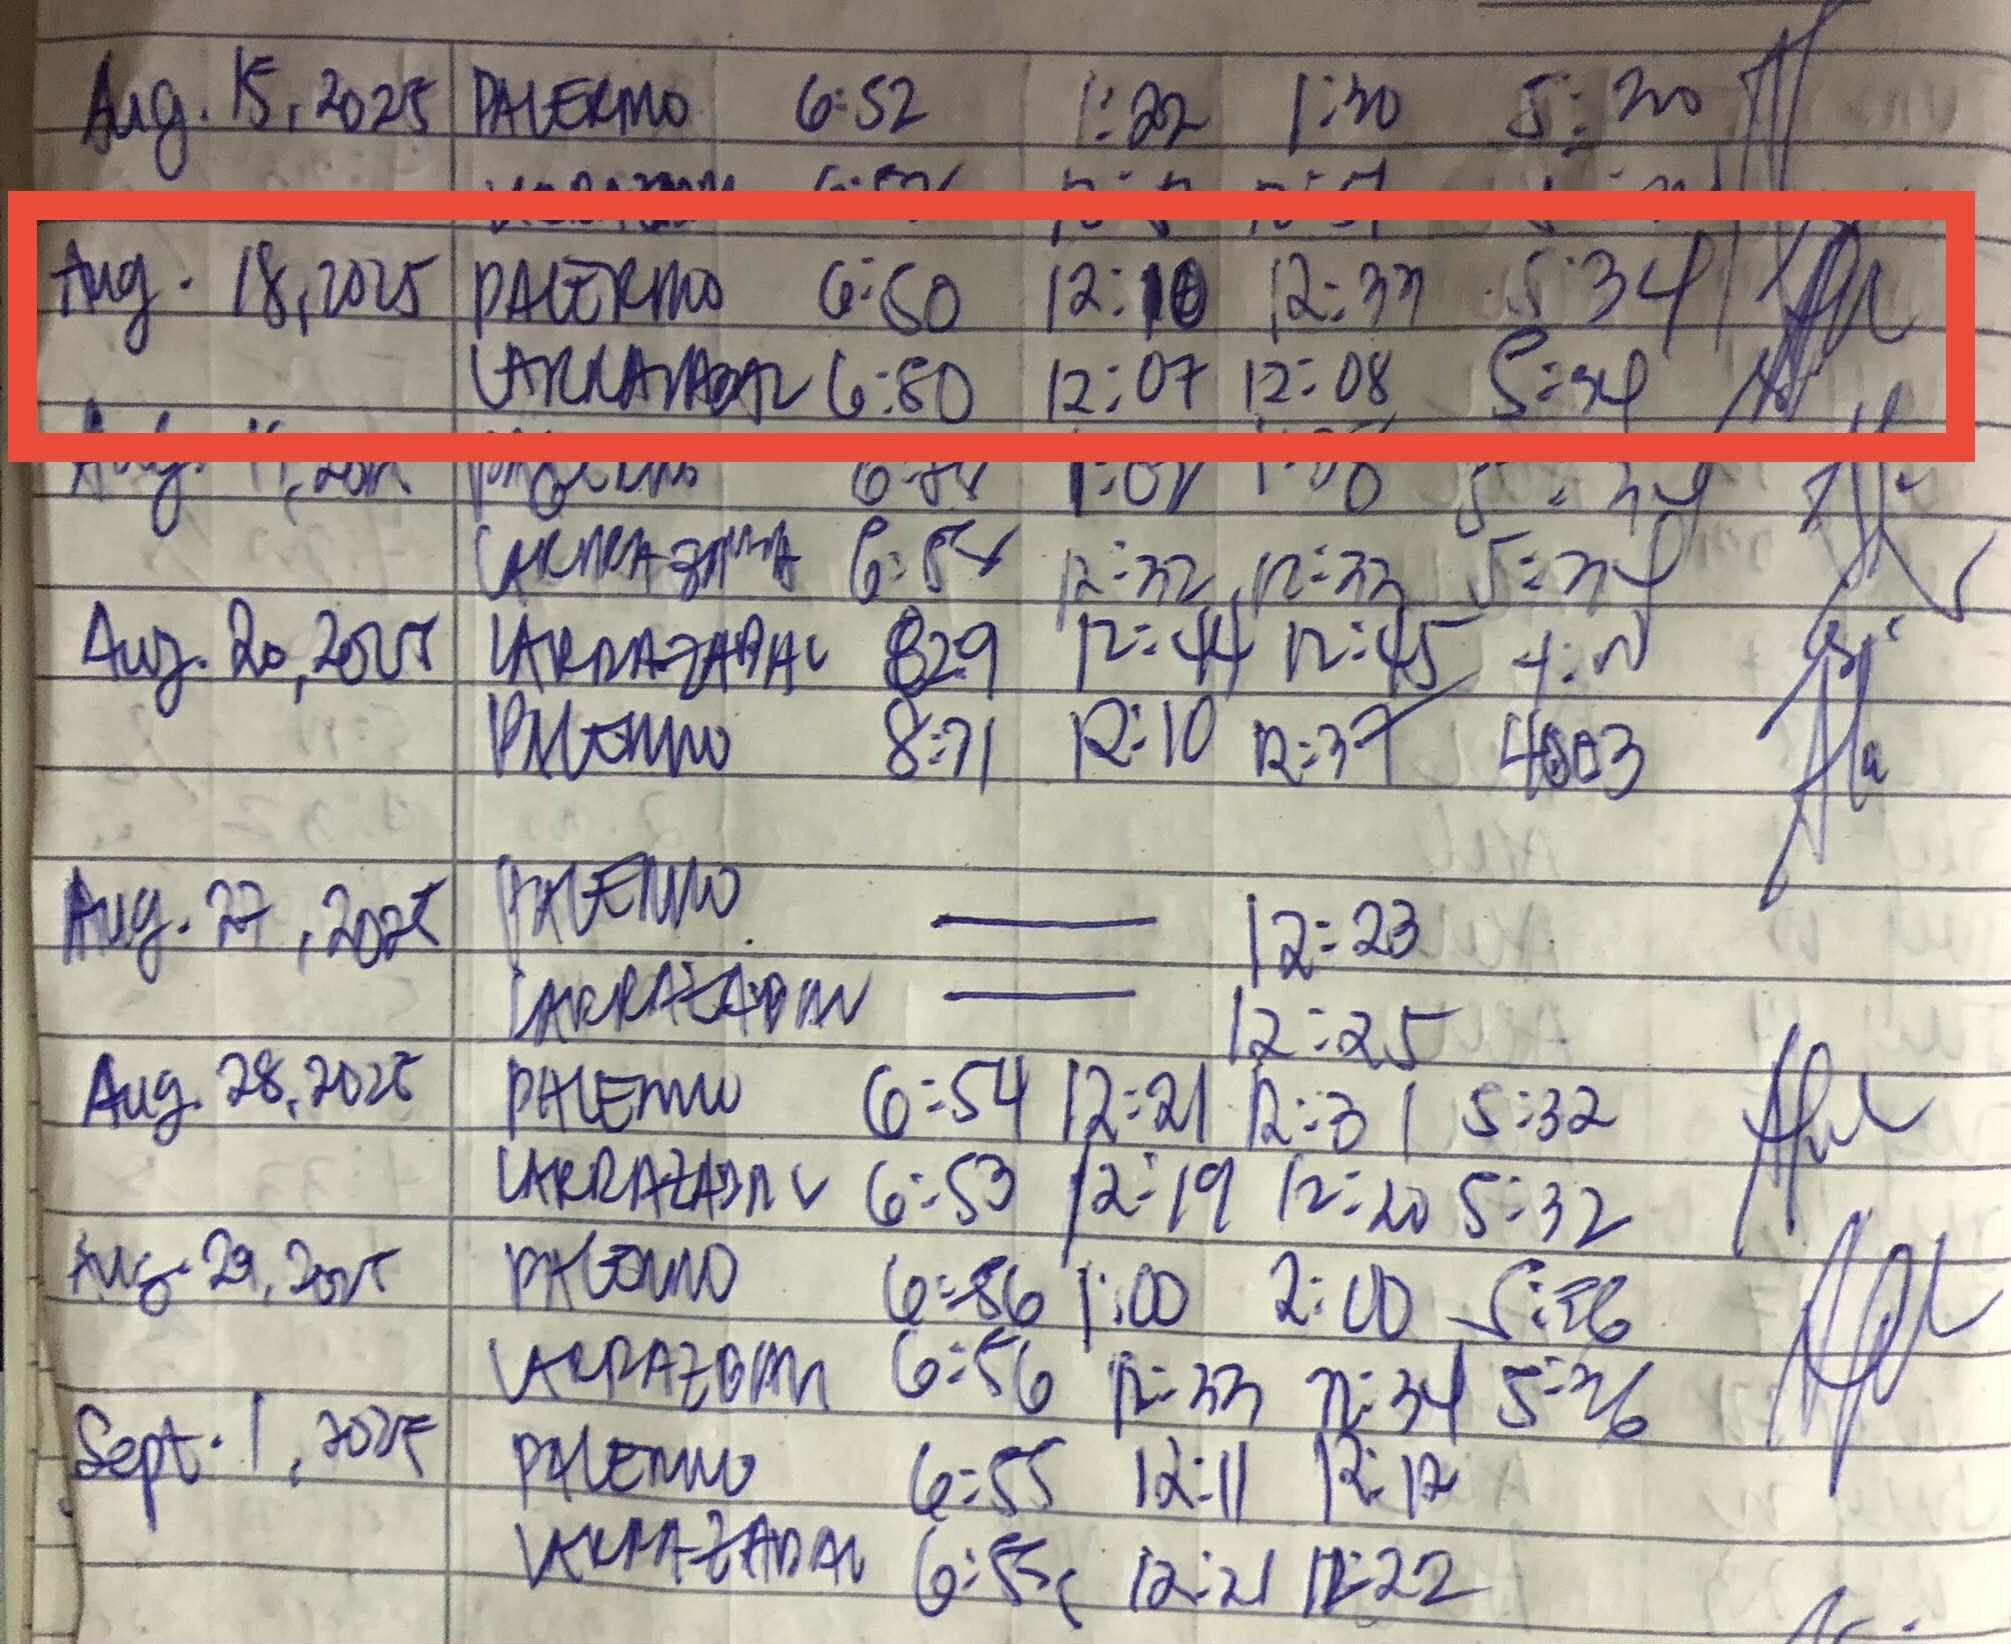 Aug. 15, 2025 PALERMO 6:52 1:22 1:30 5:30
Aug. 18, 2025 PALERMO 6:50 12:10 12:33 5:34
LARRAZABAL 6:50 12:07 12:08 5:34
PALERMO 6:54 5:34
LARRAZABAL 6:54 12:32 12:33 5:34
Aug. 20, 2025 LARRAZABAL 8:29 12:44 12:45
PALERMO 8:31 12:10 12:37 4:03
Aug. 27, 2025 PALERMO — 12:23
LARRAZABAL — 12:25
Aug. 28, 2025 PALERMO 6:54 12:21 12:31 5:32
LARRAZABAL 6:53 12:19 12:20 5:32
Aug. 29, 2025 PALERMO 6:56 1:00 2:00 5:36
LARRAZABAL 6:56 12:33 12:34 5:36
Sept. 1, 2025 PALERMO 6:55 12:11 12:12
LARRAZABAL 6:55 12:21 12:22